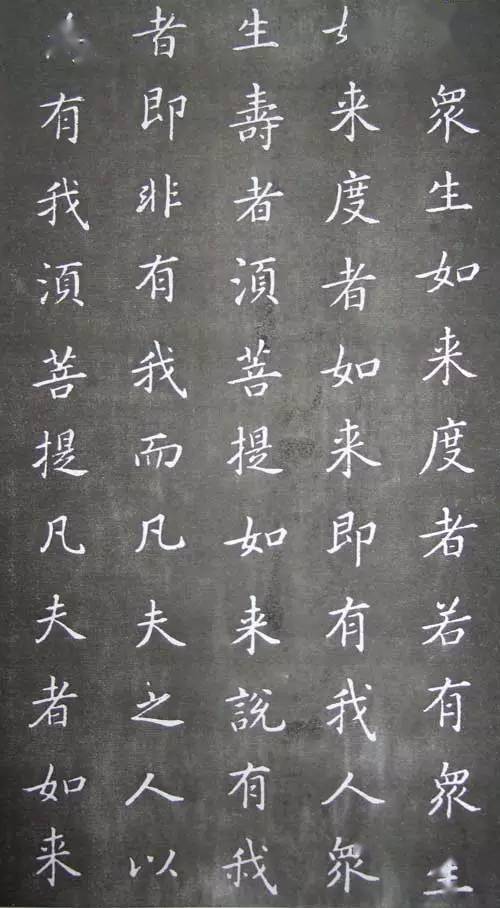 衆生如来度者若有衆生
来度者如来即有我人衆
生壽者湏菩提如来說有我
者即非有我而凡夫之人以
有我湏菩提凡夫者如来